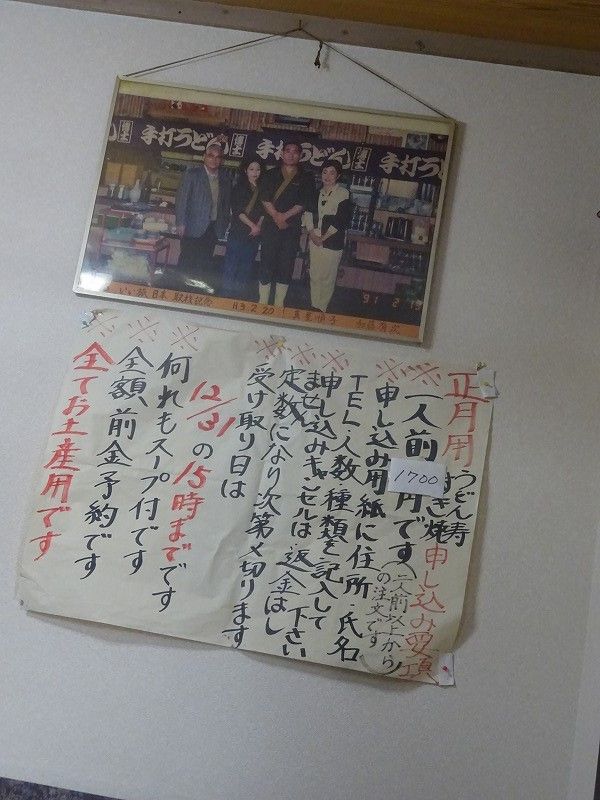 手打うどん
手打うどん
手打うどん
いい旅 日本 取材記念 H3.2.20
91 2 19
正月用うどん寿き焼申し込み受項
※一人前1700円です(二人前以上からの注文です)
※申し込み用紙に住所・氏名
TEL・人数・種類を記入して下さい
※申し込みキャンセルは、返金はし
ません
※定数になり次第〆切ります
※受け取り日は
12/31の15時までです
※何れもスープ付です
※全額、前金予約です
※全てお土産用です